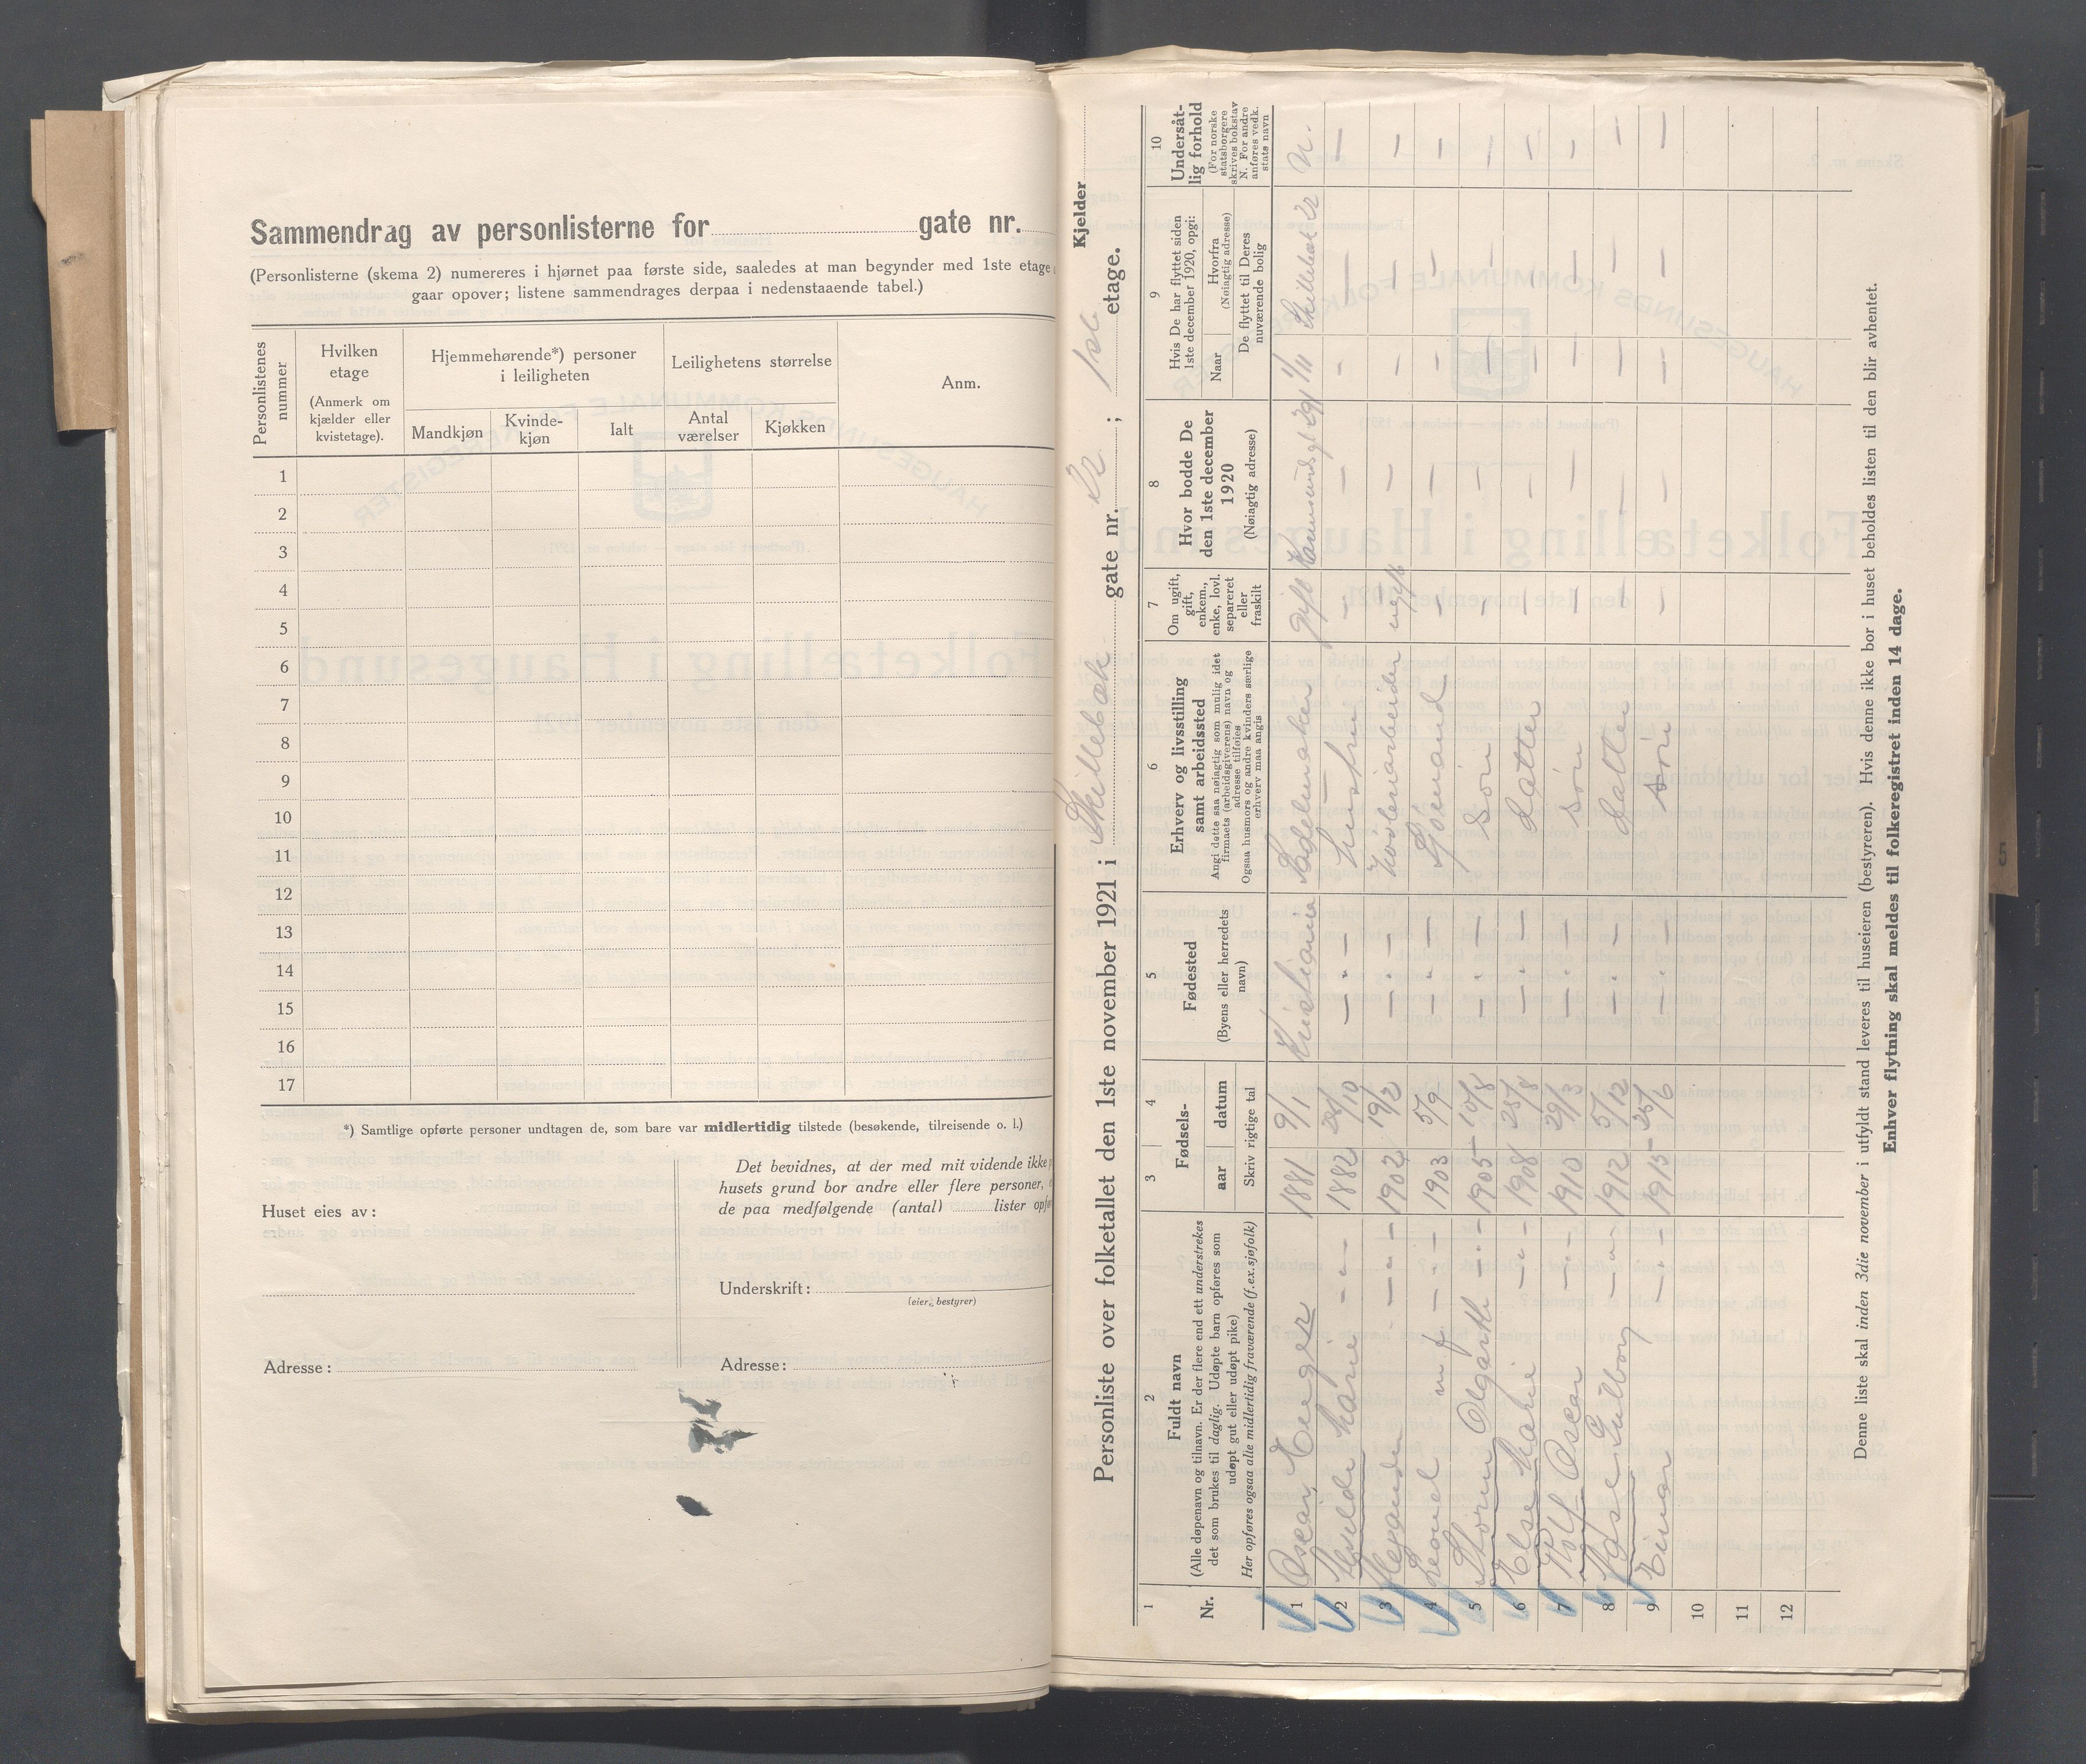 Sammendrag av personlisterne for gate nr.
(Personlisterne (skema 2) numereres i hjørnet paa første side, saaledes at man begynder med 1ste etage
gaar opover; listene sammendrages derpaa i nedenstaaende tabel.)
Personlistenes nummer
Hvilken etage
(Anmerk om kjælder eller kvistetage).
Hjemmehørende*) personer i leiligheten
Mandkjøn
Kvinde-kjøn
Ialt
Leilighetens størrelse
Antal værelser
Kjøkken
Anm.
1
2
3
4
5
6
7
8
9
10
11
12
13
14
15
16
17
*) Samtlige opførte personer undtagen de, som bare var midlertidig tilstede (besøkende, tilreisende o. l.)
Huset eies av:
Adresse:
Det bevidnes, at der med mit vidende ikke
husets grund bor andre eller flere personer,
de paa medfølgende (antal) lister opf
Underskrift:
(eier, bestyrer)
Adresse:
Kjelder
Personliste over folketallet den 1ste november 1921 i Skillebæk gate nr. 22 ; 1ste etage.
1
Nr.
2
Fuldt navn
(Alle døpenavn og tilnavn. Er der flere end ett understrekes
det som brukes til daglig. Udøpte barn opføres som
udøpt gut eller udøpt pike)
Her opføres ogsaa alle midlertidig fraværende (f.ex.sjøfolk)
3 4
Fødsels-
aar datum
Skriv rigtige tal
5
Fødested
(Byens eller herredets navn)
6
Erhverv og livsstilling
samt arbeidssted
Angi dette saa nøiagtig som mulig idet
firmaets (arbeidsgiverens) navn og
adresse tilføies
Ogsaa husmors og andre kvinders særlige
erhverv maa angis
7
Om ugift,
gift,
enkem.,
enke, lovl.
separeret
eller
fraskilt
8
Hvor bodde De
den 1ste december
1920
(Nøiagtig adresse)
9
Hvis De har flyttet siden
1ste december 1920, opgi:
Naar
Hvorfra
(Nøiagtig adresse)
De flyttet til Deres
nuværende bolig
10
Undersåt-
lig forhold
(For norske
statsborgere
skrives bokstav
N. For andre
anføres vedk.
stats navn
1 Oscar, Enger 1881 9/1 Kristiania Sadelmaker gift 1/11 Skillebæk 22 N.
2 Marie - " - 1882 /10 — " — husfru — — — — —
3 - " - 1902 19/2 — " — ugift — — — —
4 Leonel - " - 1903 5/9 — " — Sjömand — — — — —
5 - " - 1905 10/8 — " — Sön — — — — —
6 Else Marie - " - 1908 25/8 — " — datter — — — — —
7 Rolf Oscar - " - 1910 29/3 — " — sön — — — — —
8 Aase Gudborg - " - 1912 5/12 — " — datter — — — — —
9 Einar - " - 1915 25/6 — " — sön — — — — —
10
11
12
Denne liste skal inden 3die november i utfyldt stand leveres til huseieren (bestyreren). Hvis denne ikke bor i huset beholdes listen til den blir avhentet.
Enhver flytning skal meldes til folkeregistret inden 14 dage.